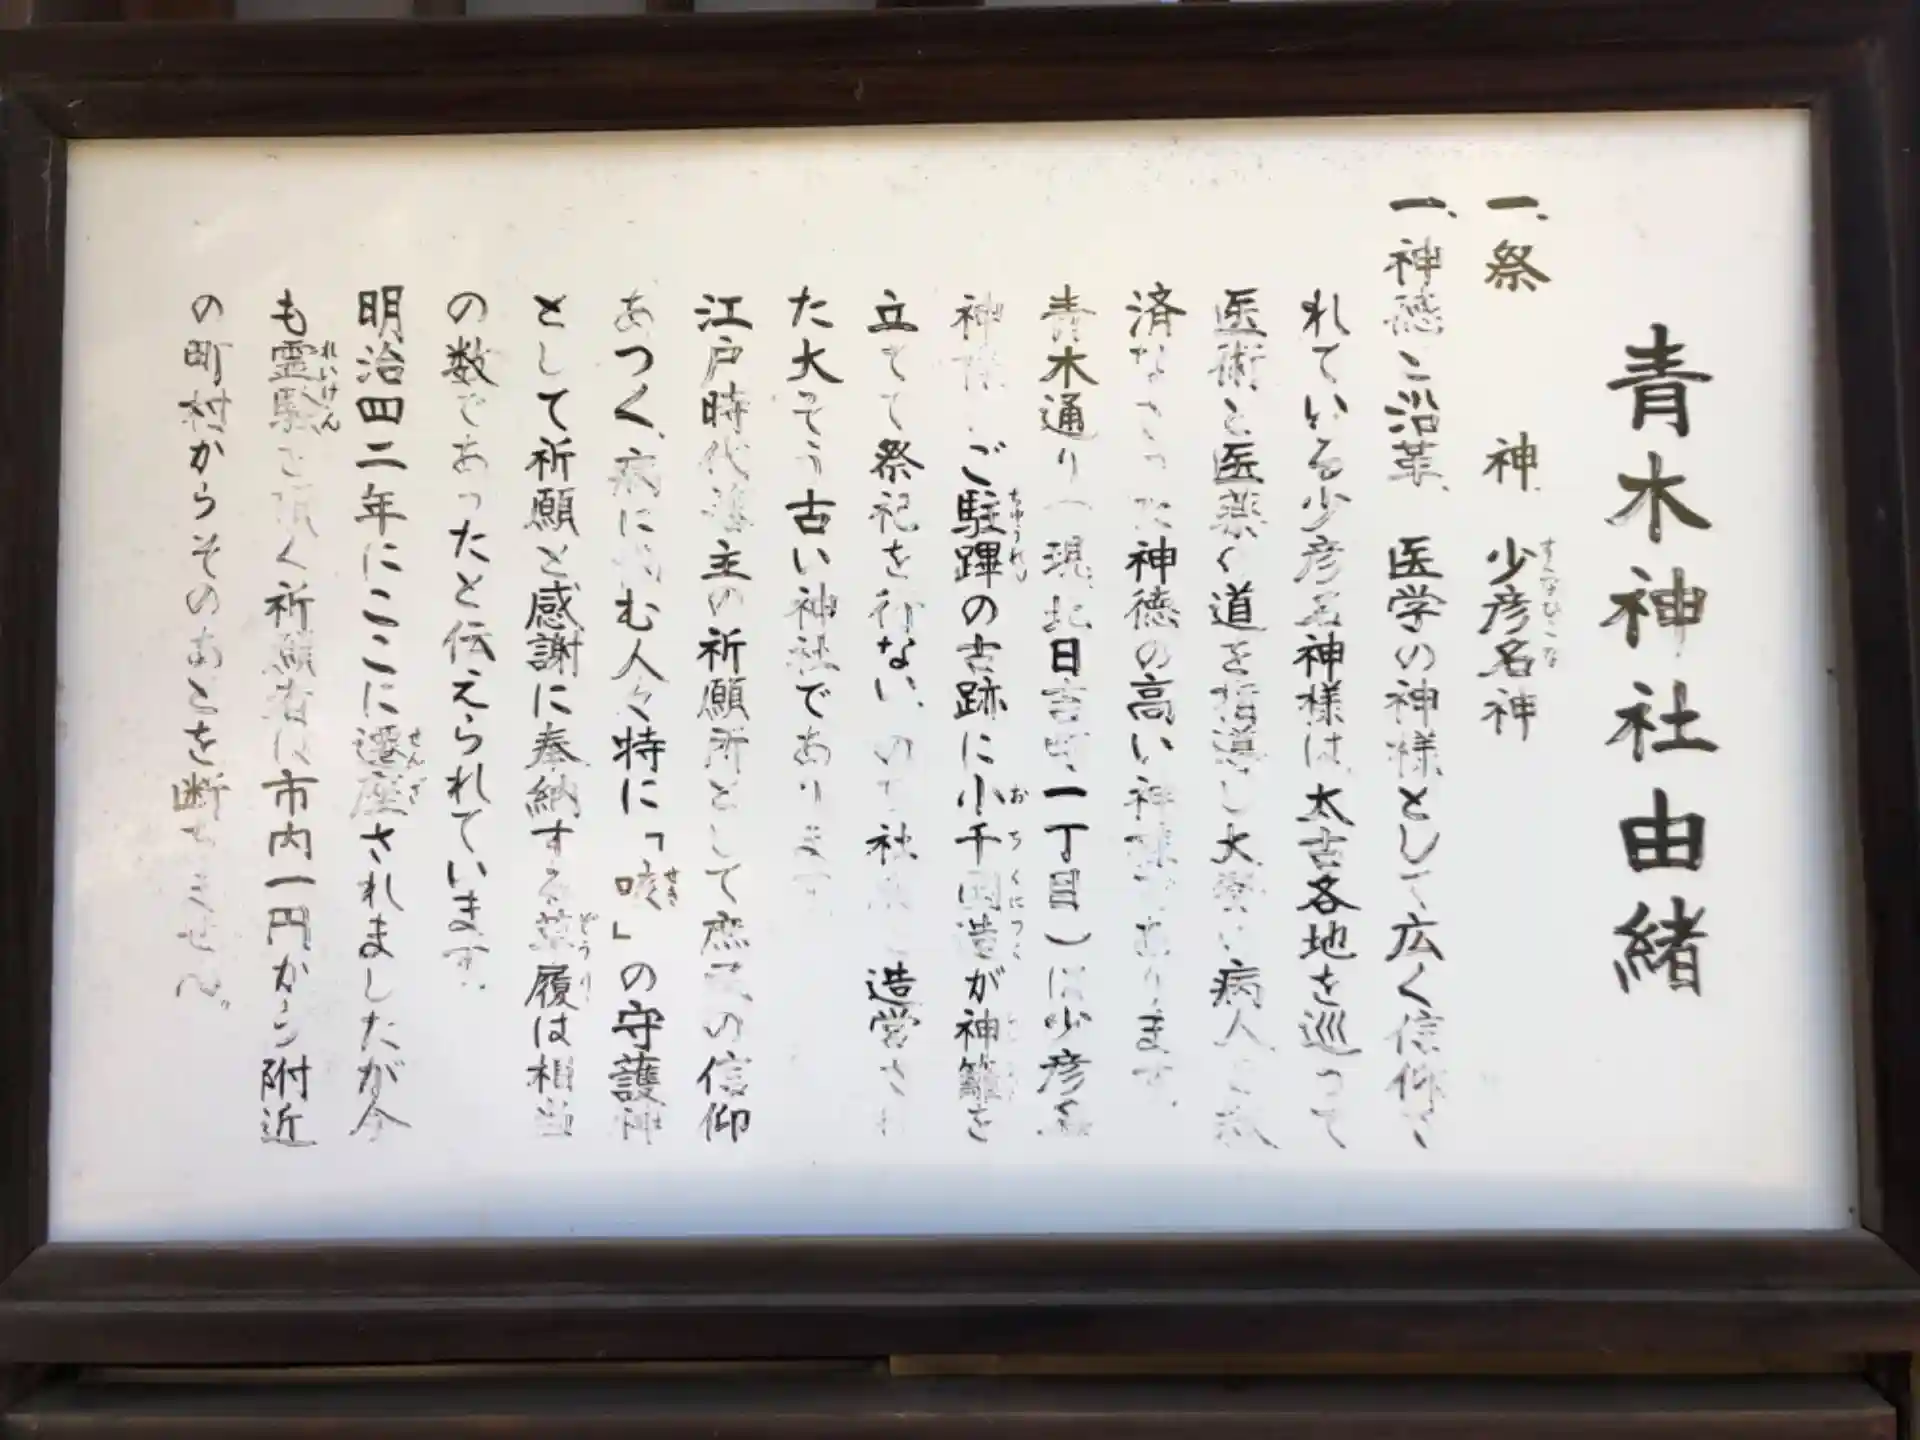 青木神社由緒
一、祭 神 少彦名神
すなひこな
一、神徳と沿革、医学の神様として広く信仰さ
れている少彦名神様は、太古各地を巡って
医術と医薬の道を指導し大勢の病人を救
済なさった神徳の高い神様であります。
青木通り(現、北日吉町一丁目)は少彦名
神様 ご駐蹕の古跡に小千国造が神籬を
ちゅうれん
おちくにつこ
立てて祭祀を行ない、のち社 造営され
た大そう古い神社であります
江戸時代藩主の祈願所として庶民の信仰
あつく、病に悩む人々特に「咳」の守護神
せき
として祈願と感謝に奉納する草履は相当
ぞうり
の数であったと伝えられています。
明治四二年にここに遷座されましたが今
せんざ
も霊験を頂く祈願者は市内一円から附近
れいけん
の町村からそのあとを断ちません。